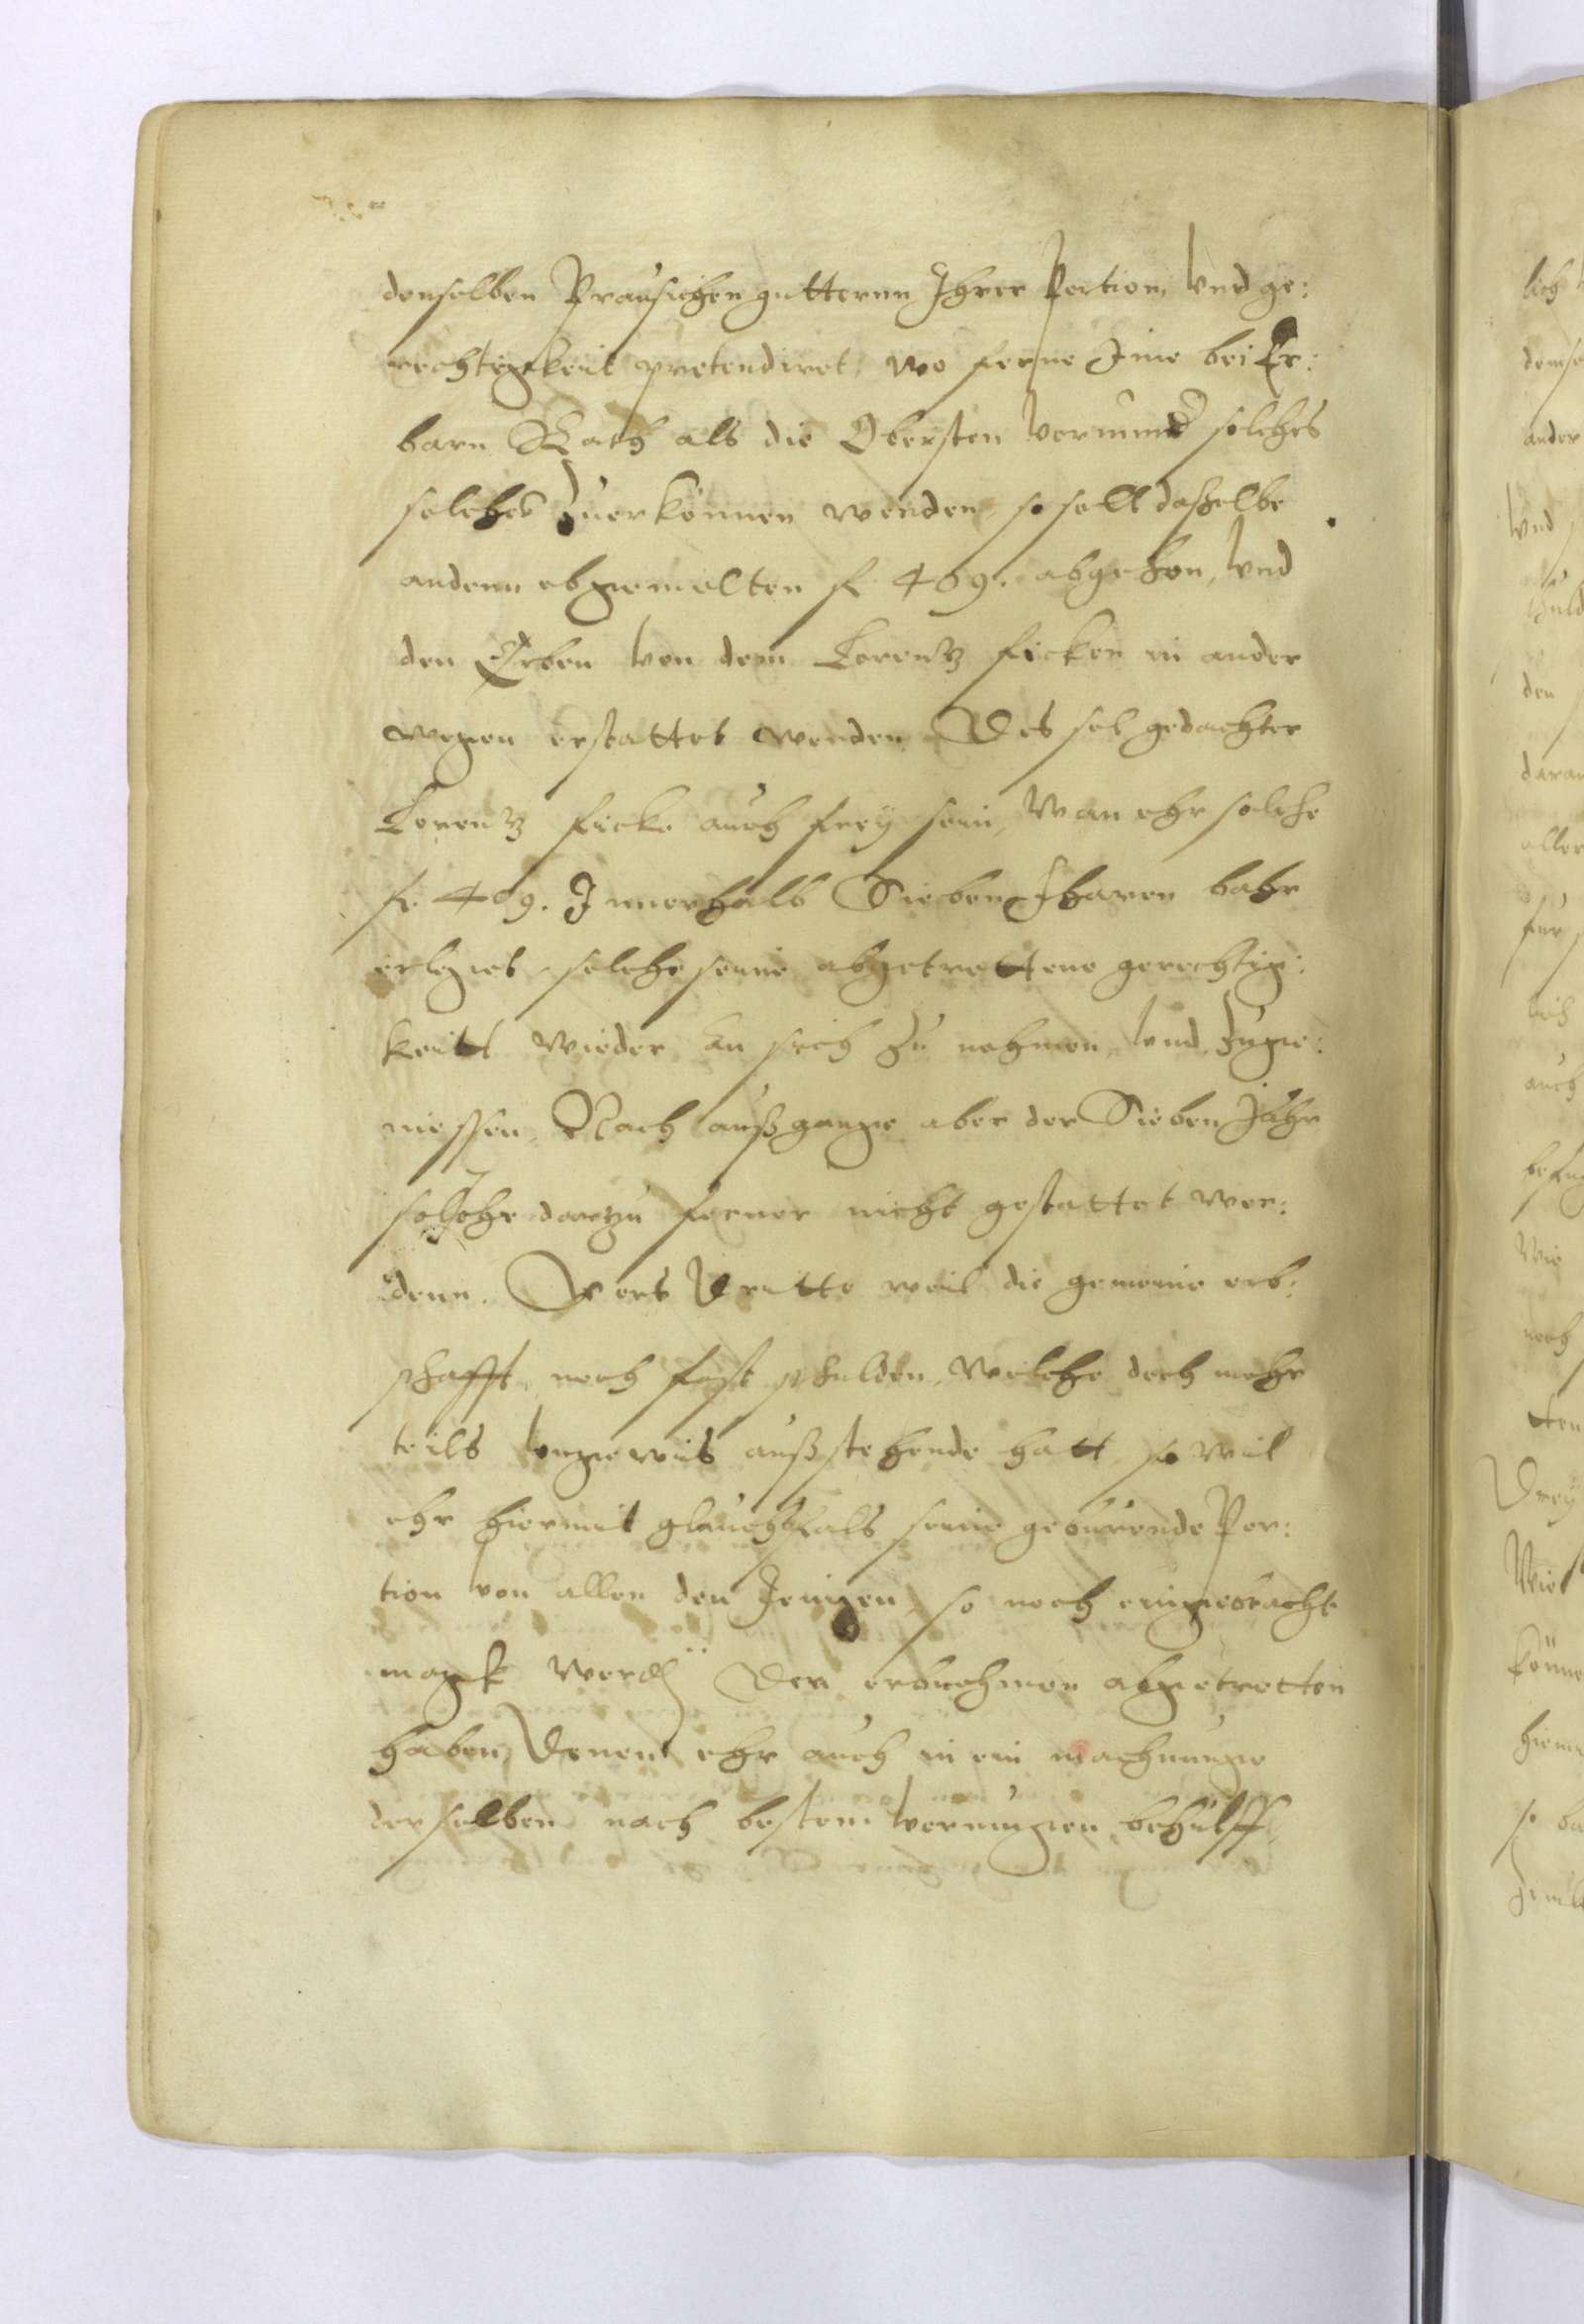 denselben Prausichen gutternn Ihrer Portion, vnd ge:
rechtigkeit pretendiret, wo ferne Ime bei Er:
barn Rath als die Obersten vormund solches
solches Zuerkennen werden, so soll daßelbe
andenn obgemelten f 409. abgehen, vnd
den Erben von dem Lorentz ficken in ander
wegen erstattet werden, Des sol gedachter
Lorentz ficke auch frey sein, Wan ehr solche
f. 409. Innerhalb Sieben Jharen bahr
erleget, solche seine abgetrettene gerechtig:
keitt wieder an sich Zu nehmen, vnd Zuge:
niessen, Nach außgange aber der Sieben Jahr
sol Jhr dartzu ferner nicht gestattet wer:
denn. Vors Dritte weil die gemeine erb:
schafft, noch fast schulden, Welche doch mehr
teils vngewis außstehende hatt so wil
ehr hiermit gleichfals seine geburende Por:
tion von allen den Jenigen, so noch eingebracht
magk werden Den erbnehmen abgetretten
haben, Denen ehr auch in ein machnunge
derselben nach bestem vermugen behülff
lich
demse
ander
vnd
den
daran
aller
für
auch
Wie
noch
Drey
Wie
Könne
hierm
so ba